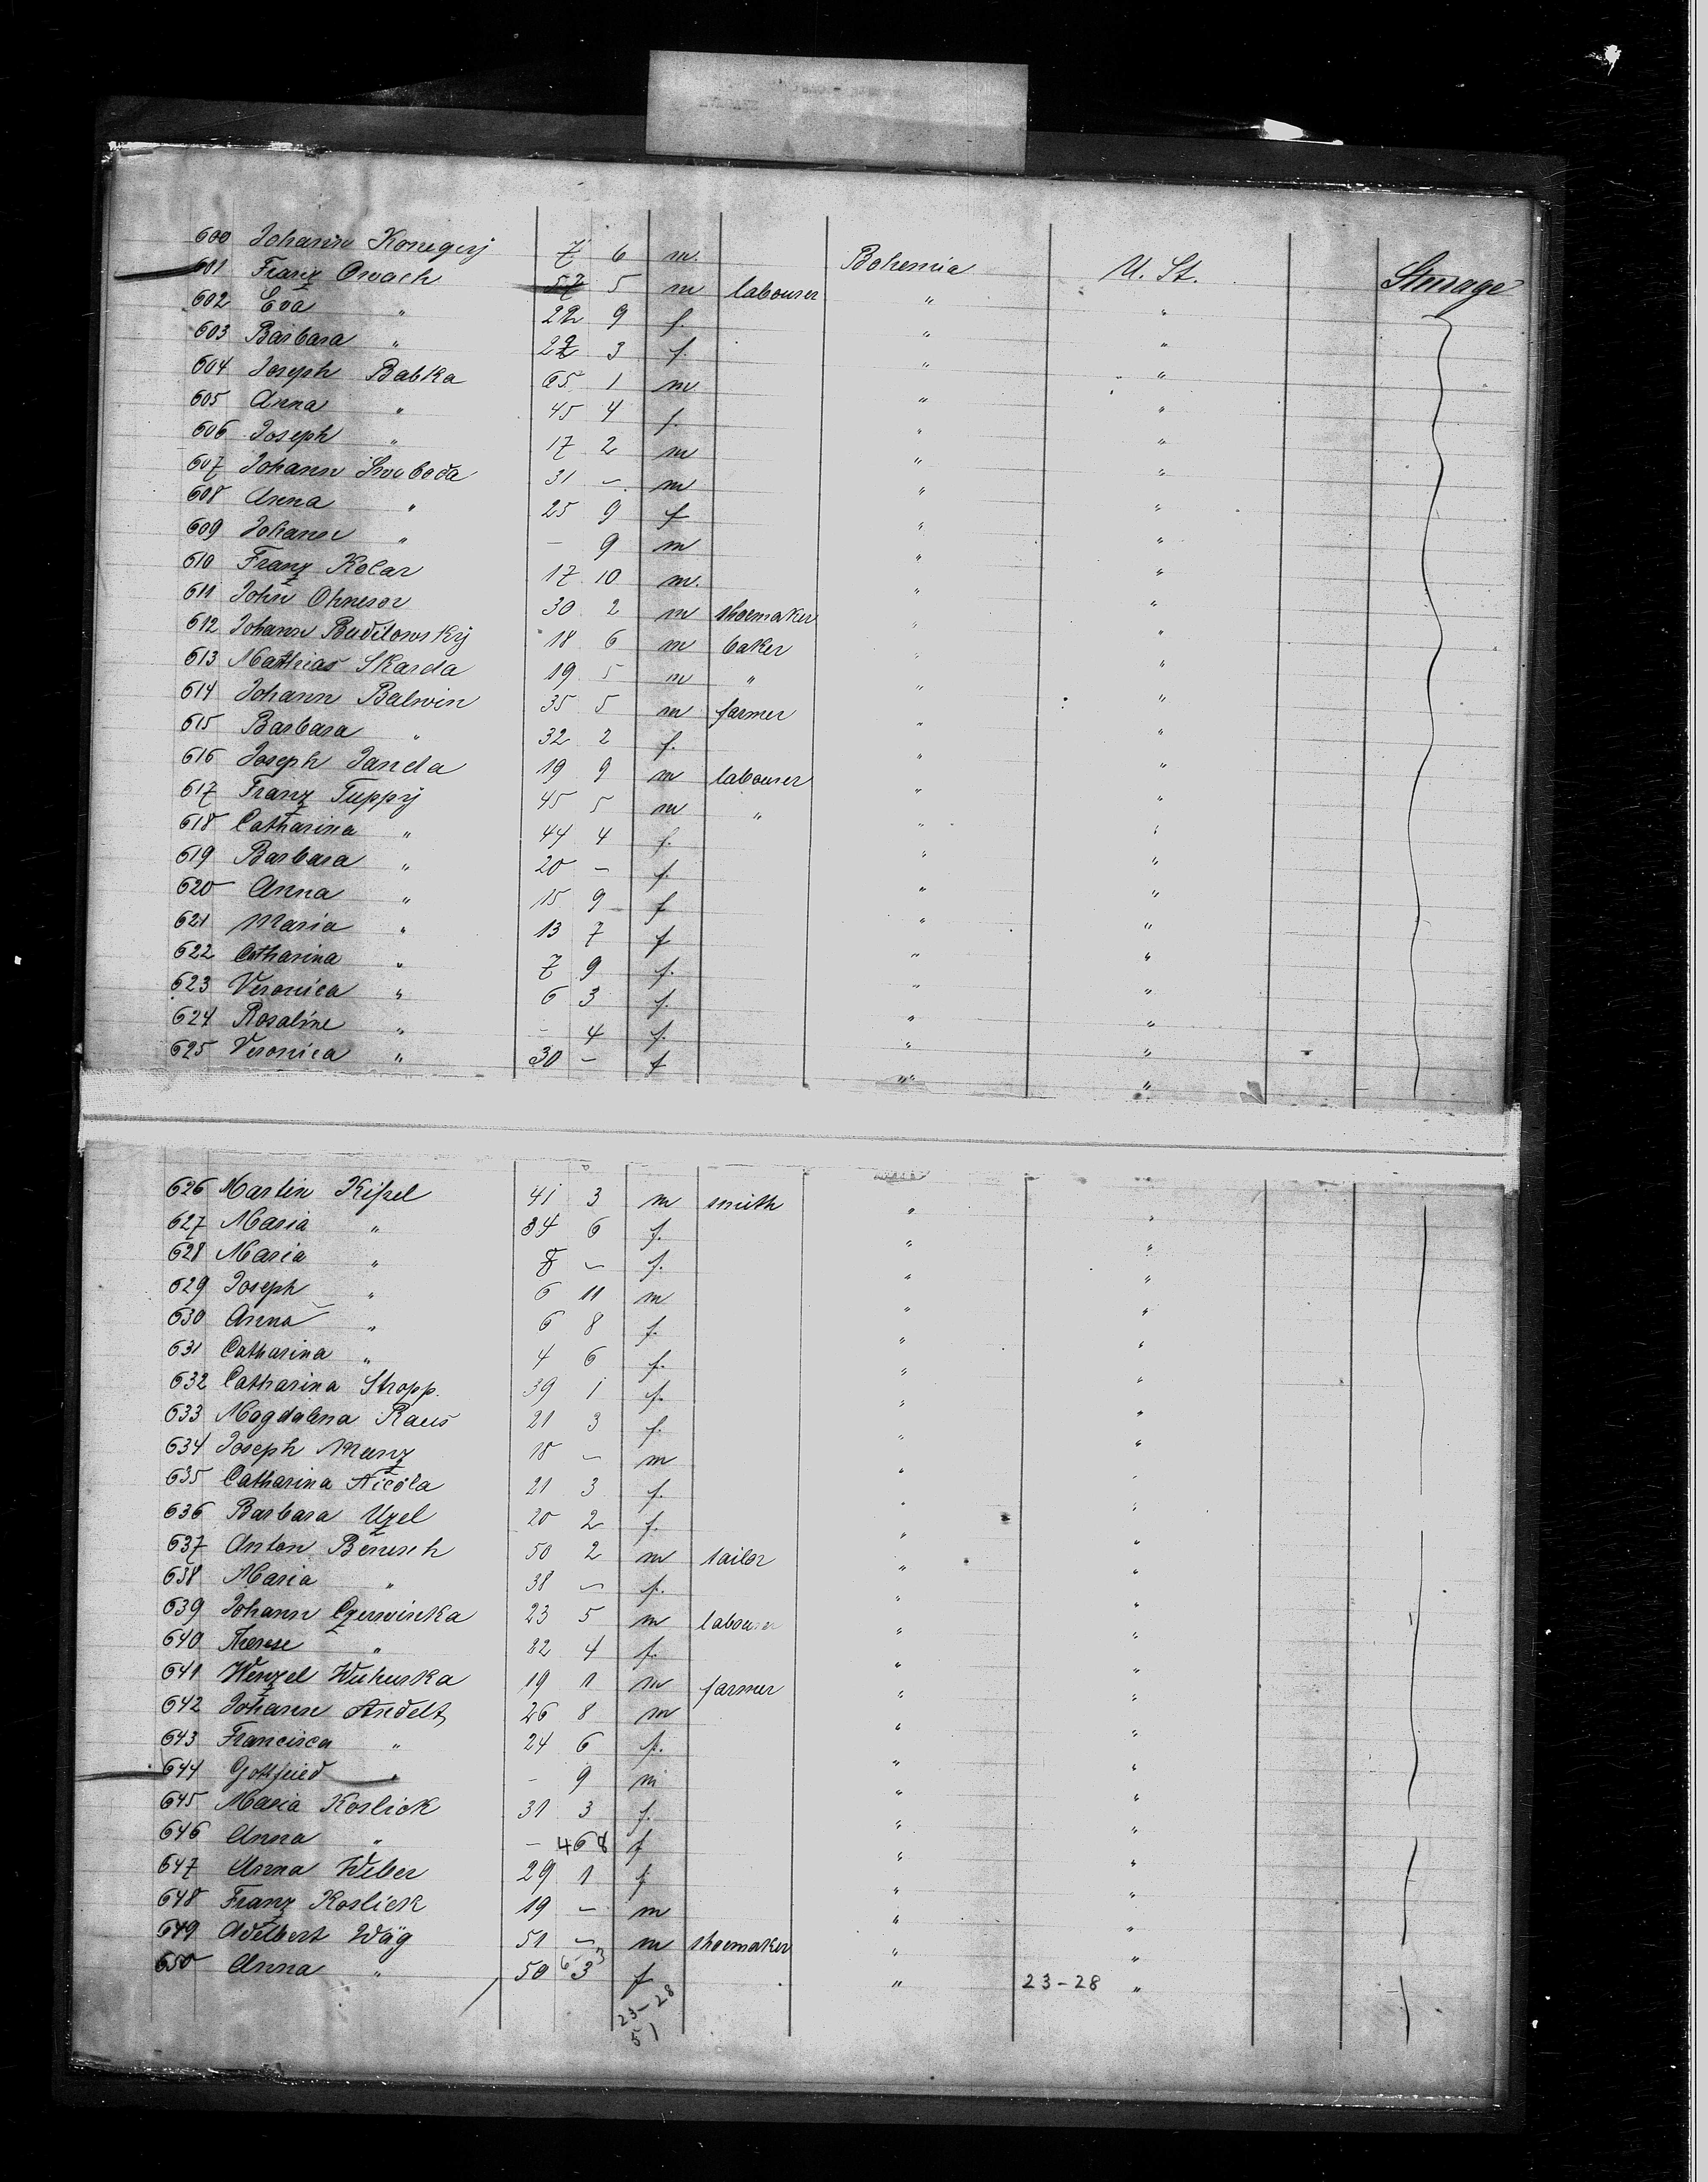 600 Johann Konegvÿ 7 6 m. Bohemia U. St. Steerage
601 Franz Owach 57 5 m labourer " "
602 Eva " 22 9 f. " "
603 Barbara " 22 3 f. " "
604 Joseph Babka 65 1 m " "
605 Anna " 45 4 f. " "
606 Joseph " 17 2 m " "
607 Johann Swoboda 31 – m " "
608 Anna " 25 9 f " "
609 Johann " – 9 m " "
610 Franz Kolar 17 10 m. " "
611 John Ohnesor 30 2 m shoemaker " "
612 Johann Budilowskÿ 18 6 m baker " "
613 Mathias Skarda 19 5 m " " "
614 Johann Balwin 35 5 m farmer " "
615 Barbara " 32 2 f. " "
616 Joseph Janda 19 9 m labourer " "
617 Franz Tuppÿ 45 5 m " " "
618 Catharina " 44 4 f. " "
619 Barbara " 20 – f. " "
620 Anna " 15 9 f " "
621 Maria " 13 7 f " "
622 Catharina " 7 9 f. " "
623 Veronica " 6 3 f. " "
624 Rosaline " – 4 f. " "
625 Veronica " 30 – f " "
626 Martin Kißel 41 3 m smith " "
627 Maria " 34 6 f. " "
628 Maria " 8 – f. " "
629 Joseph " 6 11 m " "
630 Anna " 6 8 f. " "
631 Catharina " 4 6 f. " "
632 Catharina Stropp 39 1 f. " "
633 Magdalena Raus 21 3 f. " "
634 Joseph Manz 18 – m " "
635 Catharina Nicola 21 3 f. " "
636 Barbara Uzel 20 2 f. " "
637 Anton Benesch 50 2 m tailor " "
638 Maria " 38 – f. " "
639 Johann Czerwinka 23 5 m labourer " "
640 Therese " 22 4 f. " "
641 Wenzel Wuhuska 19 1 m farmer " "
642 Johann Andelt 26 8 m " "
643 Francisca " 24 6 f. " "
644 Gottfried " – 9 m " "
645 Maria Koslick 31 3 f. " "
646 Anna " – f " "
647 Anna Weber 29 1 f " "
648 Franz Koslick 19 – m " "
649 Adelbert Wäg 51 – m shoemaker " "
650 Anna " 50 3 f " 23-28 "
23-28
51